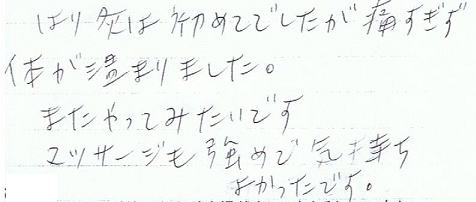 はり灸は初めてでしたが痛すぎず
体が温まりました。
またやってみたいです
マッサージも強めで気持ち
よかったです。